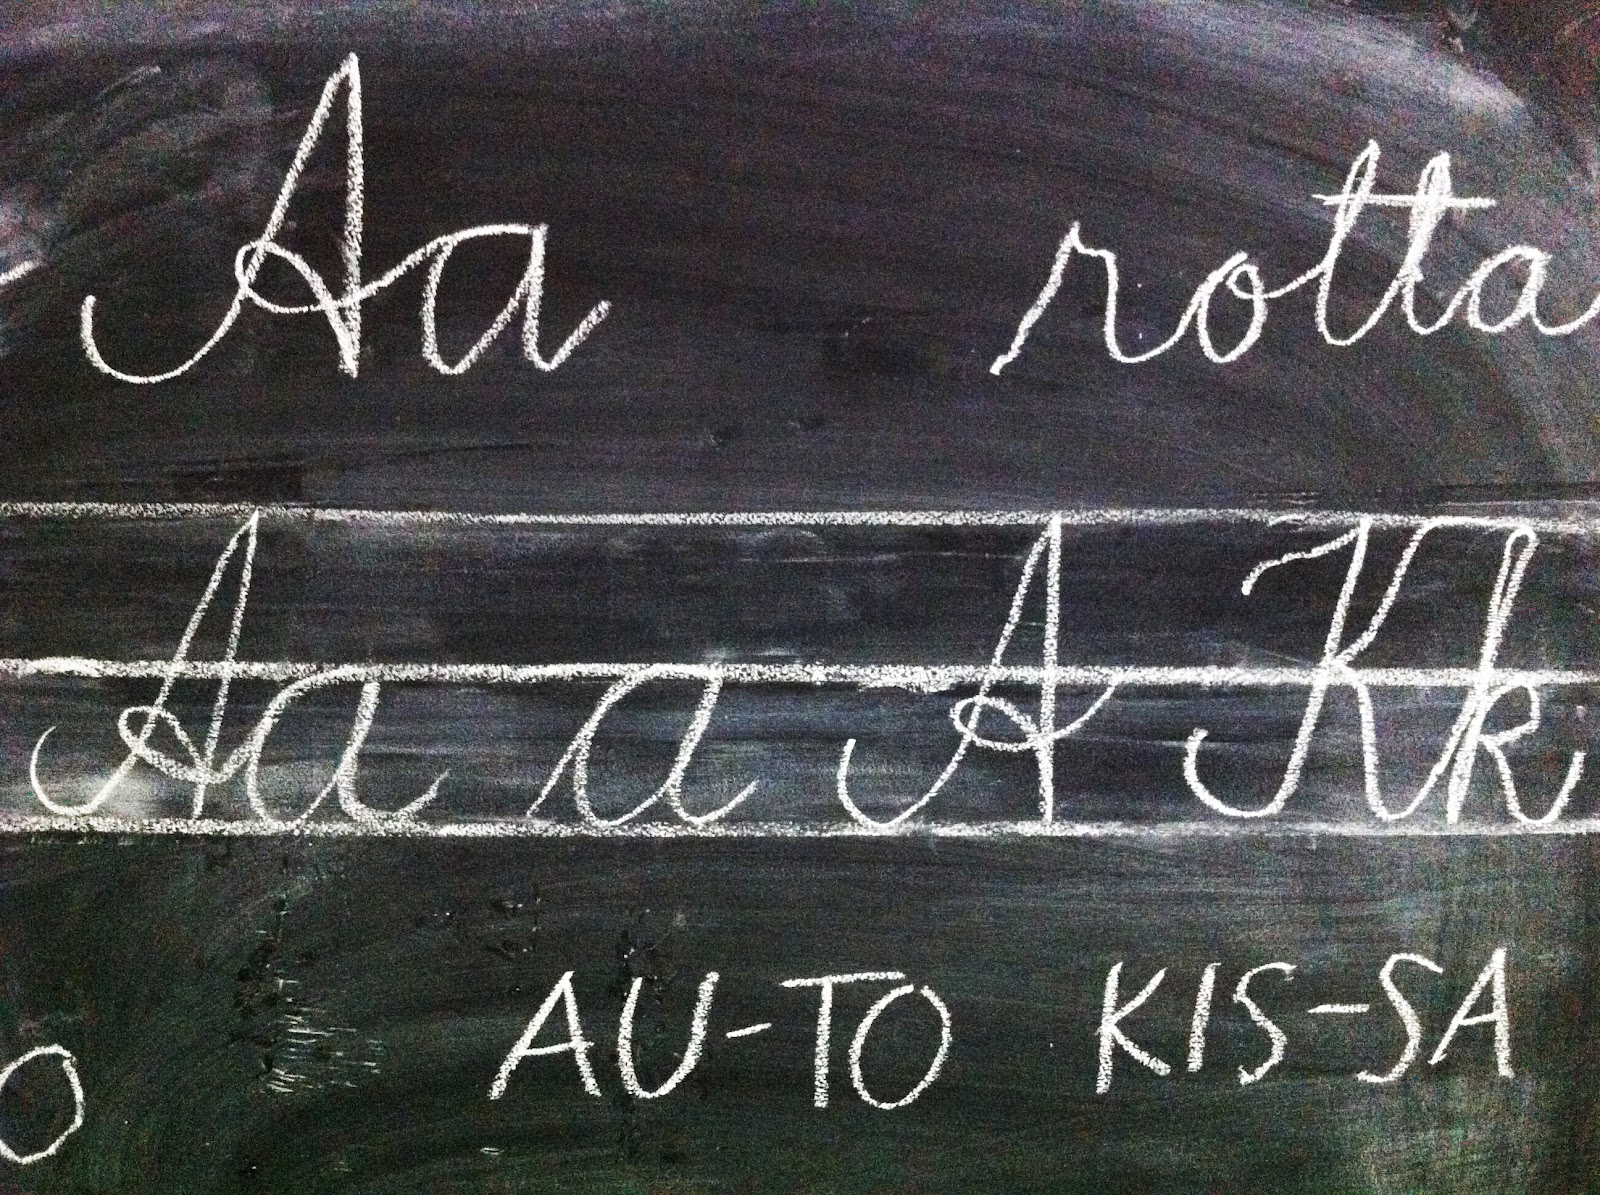 Aa rotta
Aa a A Kk
O AU-TO KIS-SA